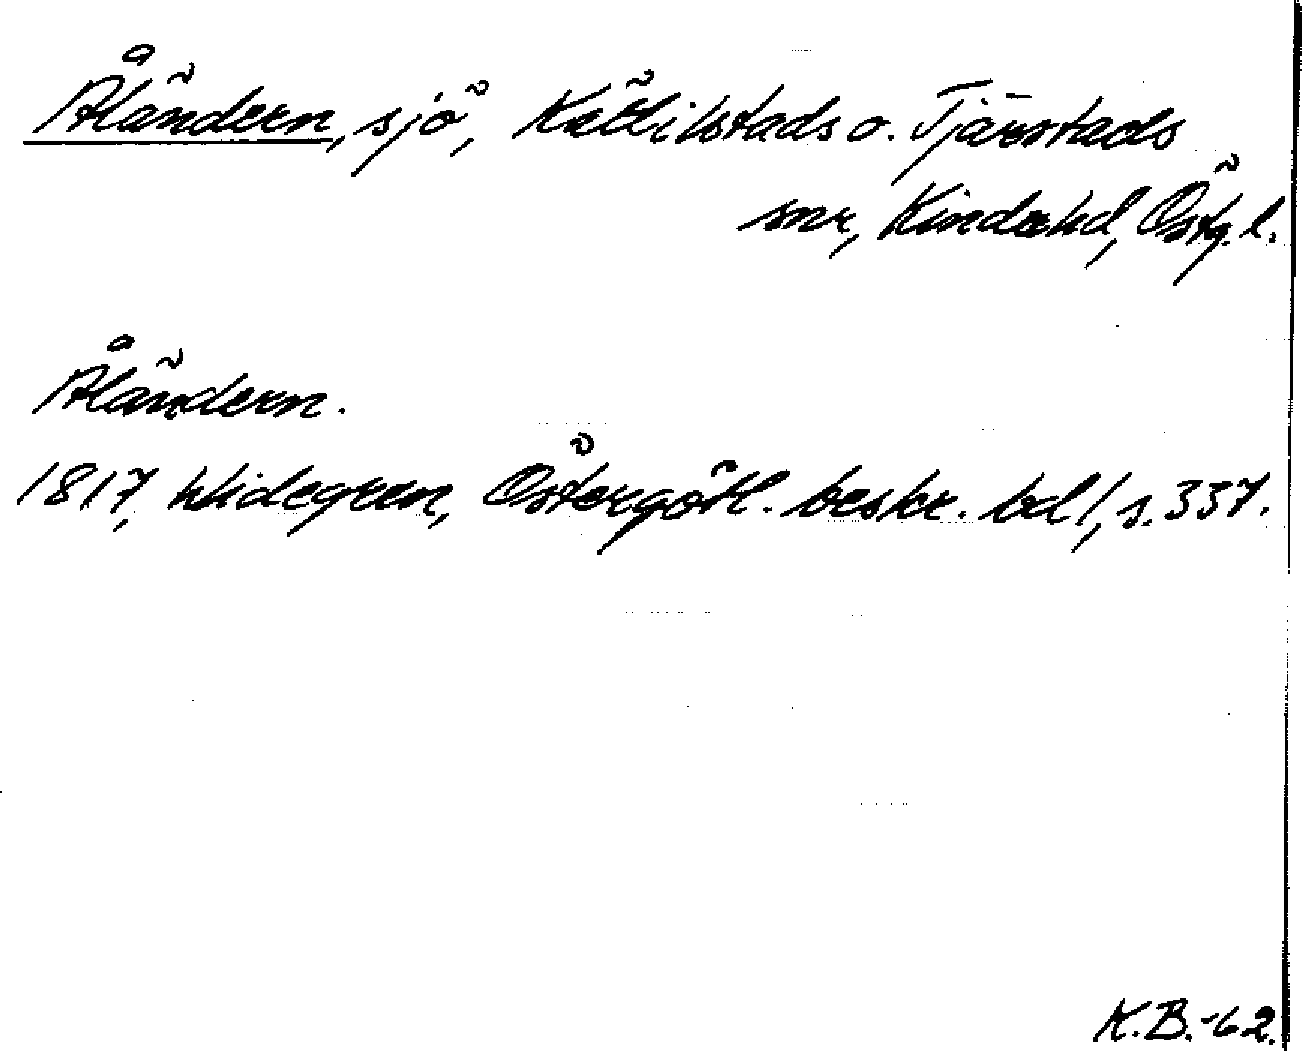 Åländern, sjö, Kättilstads o. Tjärstads
snr, Kinda hd, Östg. l.
Åländern.
1817, Widegren, Östergötl. beskr. bd 1, s. 337.
K.B.-62.